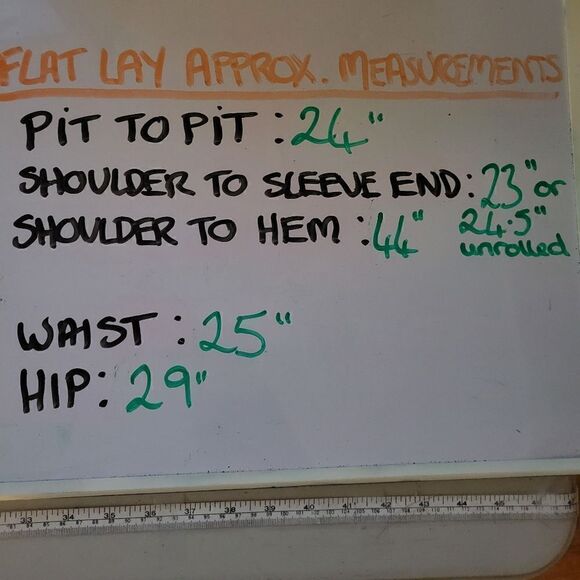 FLAT LAY APPROX. MEASUREMENTS
PIT TO PIT : 24"
SHOULDER TO SLEEVE END : 23" or
24.5"
unrolled
SHOULDER TO HEM : 44"
WAIST : 25"
HIP : 29"
33 34 35 36 37 38 39 40 41 42 43 44 45